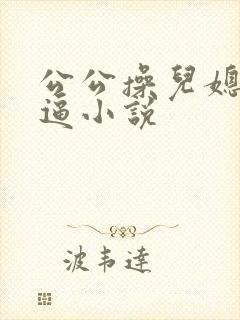 公公操兒媳
逼小説
波韦達